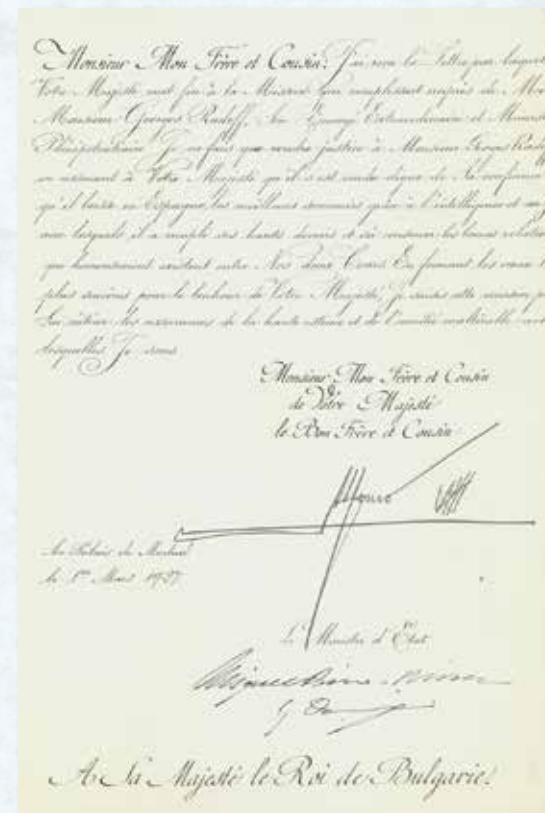 Monsieur Mon Frère et Cousin: J'ai reçu la Lettre par laquel
Votre Majesté met fin à la Mission que remplissait auprès de Mo
Monsieur Georges Radeff, Son Envoyé Extraordinaire et Minist
Plénipotentiaire. Je ne fais que rendre justice à Monsieur Georges Rade
en assurant à Votre Majesté qu'il s'est rendu digne de Sa confiance
qu'il laisse en Espagne les meilleurs souvenirs grâce à l'intelligence et au
avec lesquels il a rempli ses hauts devoirs et su conserver les bonnes relatio
qui heureusement existent entre Nos deux Cours. En formant les vœux l
plus sincères pour le bonheur de Votre Majesté, Je saisis cette occasion p
Lui réitérer les assurances de la haute estime et de l'amitié avec
lesquelles Je suis
Monsieur Mon Frère et Cousin
de Votre Majesté
le Bon Frère et Cousin
Alfonso
Au Palais de Madrid
le 1er Mars 1927
Le Ministre d'État
A Sa Majesté le Roi de Bulgarie.